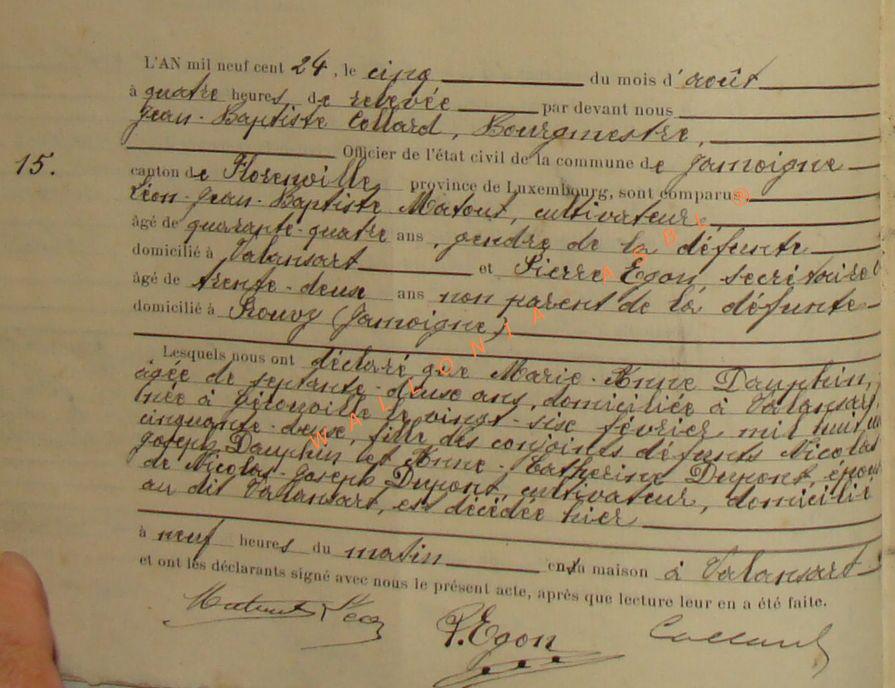 L'AN mil neuf cent 24, le cinq du mois d'août
à quatre heures de relevée par devant nous
Jean-Baptiste Collard, Bourgmestre,
Officier de l'état civil de la commune de Jamoigne
15.
canton de Florenville province de Luxembourg, sont comparus
Léon-Jean-Baptiste Matout, cultivateur,
âgé de quarante-quatre ans, gendre de la défunte
domicilié à Valansart et Pierre Egon, secrétaire
âgé de trente-deux ans non parent de la défunte
domicilié à Prouvy (Jamoigne)
Lesquels nous ont déclaré que Marie-Anne Dauphin,
âgée de septante-deux ans, domiciliée à Valansart,
née à le vingt-six février mil huit
cinquante-deux, fille des conjoints défunts Nicolas
Joseph Dauphin et Anne-Catherine Dupont, épou
de Nicolas-Joseph Dupont, cultivateur, domicilié
au dit Valansart, est décédée hier
à neuf heures du matin en sa maison à Valansart
et ont les déclarants signé avec nous le présent acte, après que lecture leur en a été faite.
P. Egon Collard
WALLONIA ASBL ®